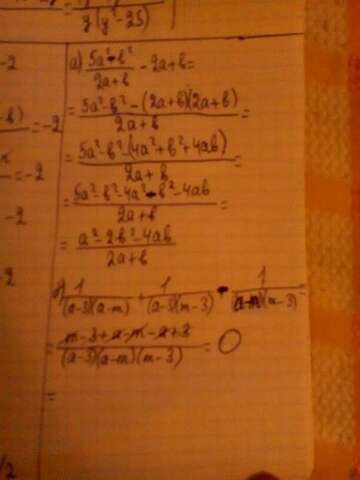 y(y²-25)
-2
а) (5a²-b²)/(2a+b) - 2a+b =
= (5a²-b²-(2a+b)(2a+b))/(2a+b) =
-b) = -2
= (5a²-b²-(4a²+b²+4ab))/(2a+b) =
= -2
= (5a²-b²-4a²-b²-4ab)/(2a+b) =
-2
= (a²-2b²-4ab)/(2a+b)
-2
1/((a-3)(a-m)) + 1/((a-3)(m-3)) - 1/((a-m)(m-3)) =
= (m-3+a-m-a+3)/((a-3)(a-m)(m-3)) = 0
=
/2